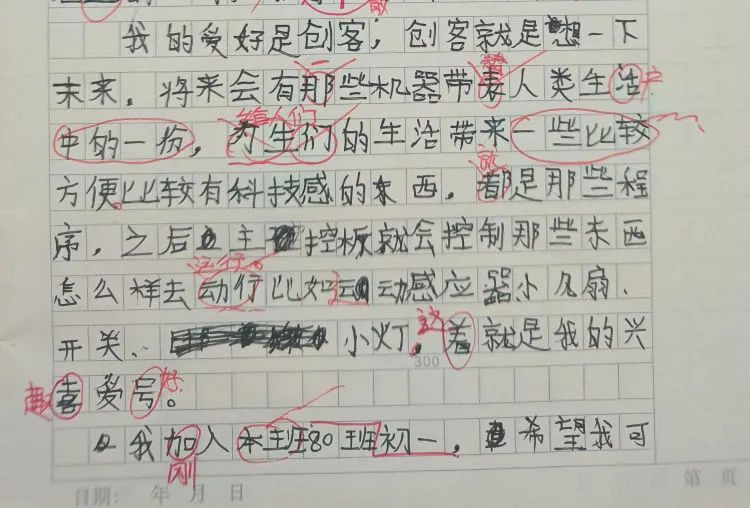 敢
我的爱好是创客，创客就是想一下
未来，将来会有那些机器带麦人类生活
给人们
中的一份，为生们的生活带来一些比较
方便。比较有科技感的东西，都是那些程
序，之后主控板就会控制那些东西
运行。
怎么样去动行比如运动动感应器小凡扇、
开关、小灯，这着就是我的兴
趣喜爱号好。
300
我加入本班80班初一，希望我可
刚
日期： 年 月 日
第 页